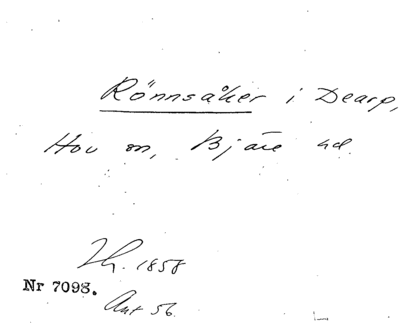 Rönnsåker i Dearp,
Hov sn, Bjäre hd.
Th. 1858
Nr 7098.
Ant 56.